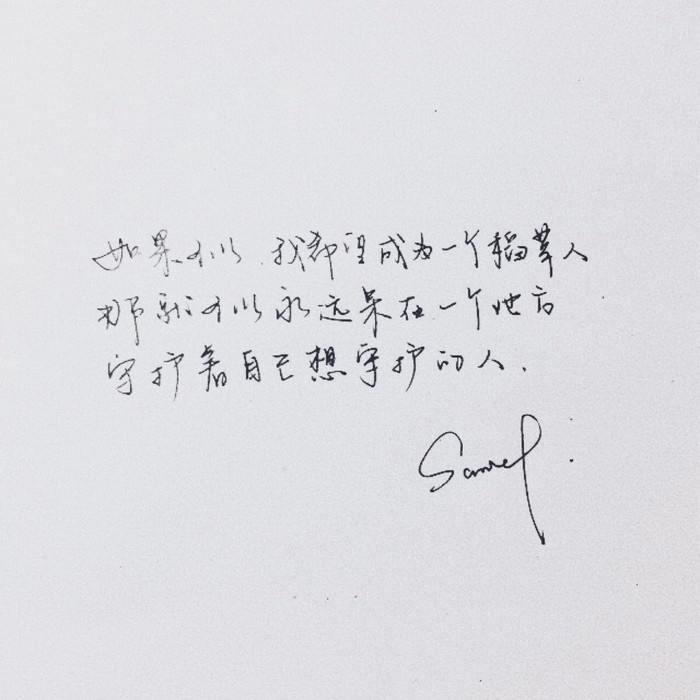 如果可以,我希望成为一个稻草人
那就可以永远呆在一个地方
守护着自己想守护的人.